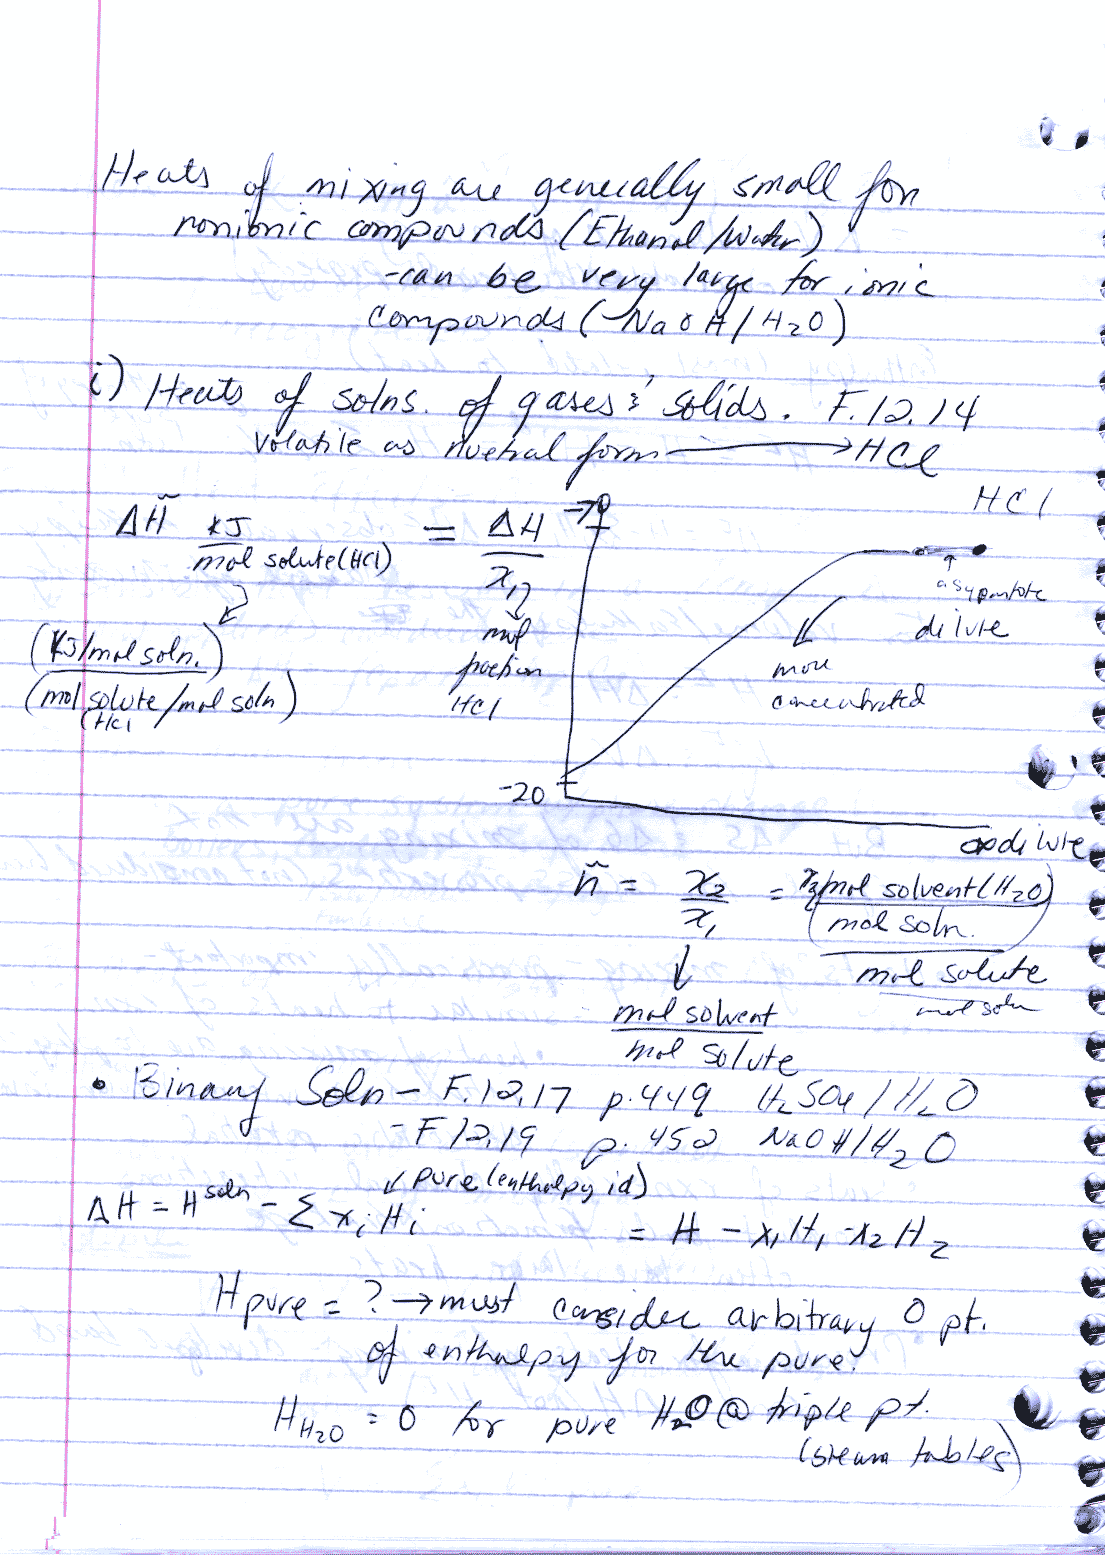 Heats of mixing are generally small for
nonionic compounds (Ethanol/Water)
-can be very large for ionic
compounds (NaOH/H2O)
i) Heats of solns. of gases & solids. F.12.14
Volatile as nuetral form → HCl
HCl
ΔH̃ kJ/mol solute (HCl) = ΔH/x1
-70
(kJ/mol soln.)
(mol solute/mol soln)
(HCl
mol
fraction
HCl
asymptote
dilute
more
concentrated
-20
∞ dilute
ñ = x2/x1 = mol solvent (H2O)
mol soln.
mol solute
mol soln
mol solvent
mol solute
• Binary Soln - F.12.17 p.449 H2SO4/H2O
- F 12.19 p. 452 NaOH/H2O
pure (enthalpy id)
ΔH = H soln - Σ xi Hi = H - x1H1 - x2H2
Hpure = ? → must consider arbitrary 0 pt.
of enthalpy for the pure.
HH2O = 0 for pure H2O @ triple pt.
(steam tables)